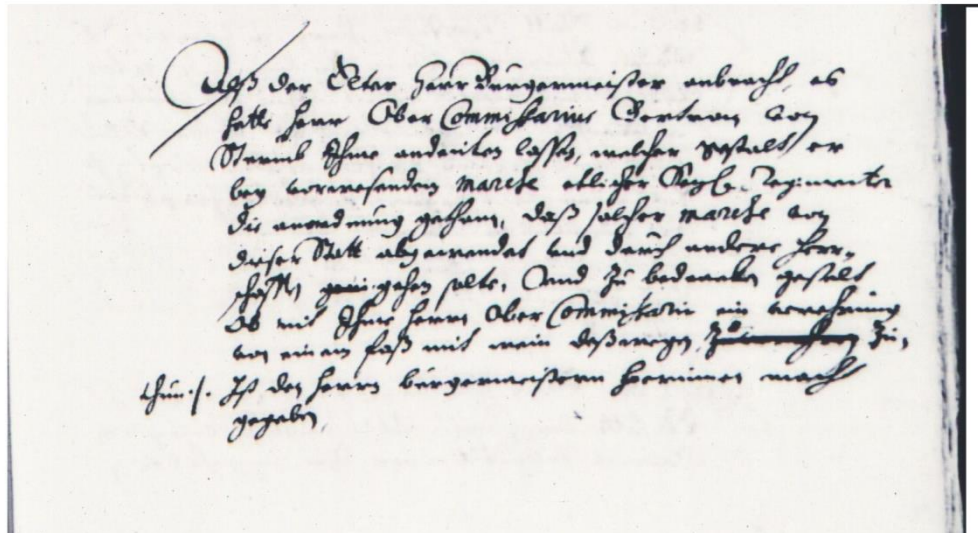 Alß der Elter Herr Bürgermeister anbracht, es
hette Herr Ober Commissarius Bertram von
Ihme andeuten lassen, welcher gestalt er
bey vorwesenden marche etlicher Regimenter
die anordnung gethan, daß solcher marche von
dieser Statt abgewendet und durch andere Herr-
schafften gehen solte, Und zu bedencken gestelt
Ob nit Ihme Herrn Ober Commissario ein verehrung
von einem faß mit wein deßwegen zu
thun ·/. Ist den Herrn bürgermeistern hierinnen macht
gegeben,